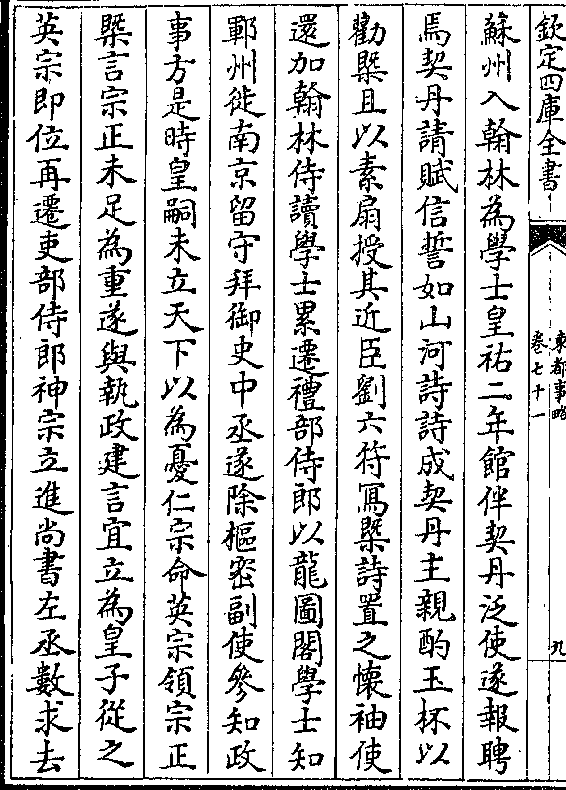 欽定四庫全書
東都事略
卷七十一
九
蘇州入翰林為學士皇祐二年館伴契丹泛使遂報聘
焉契丹請賦信誓如山河詩詩成契丹主親酌玉杯以
勸槩且以素扇授其近臣劉六符寫槩詩置之懷袖使
還加翰林侍讀學士累遷禮部侍郎以龍圖閣學士知
鄆州徙南京留守拜御史中丞遂除樞密副使參知政
事方是時皇嗣未立天下以為憂仁宗命英宗領宗正
槩言宗正未足為重遂與執政建言宜立為皇子從之
英宗即位再遷吏部侍郎神宗立進尚書左丞數求去